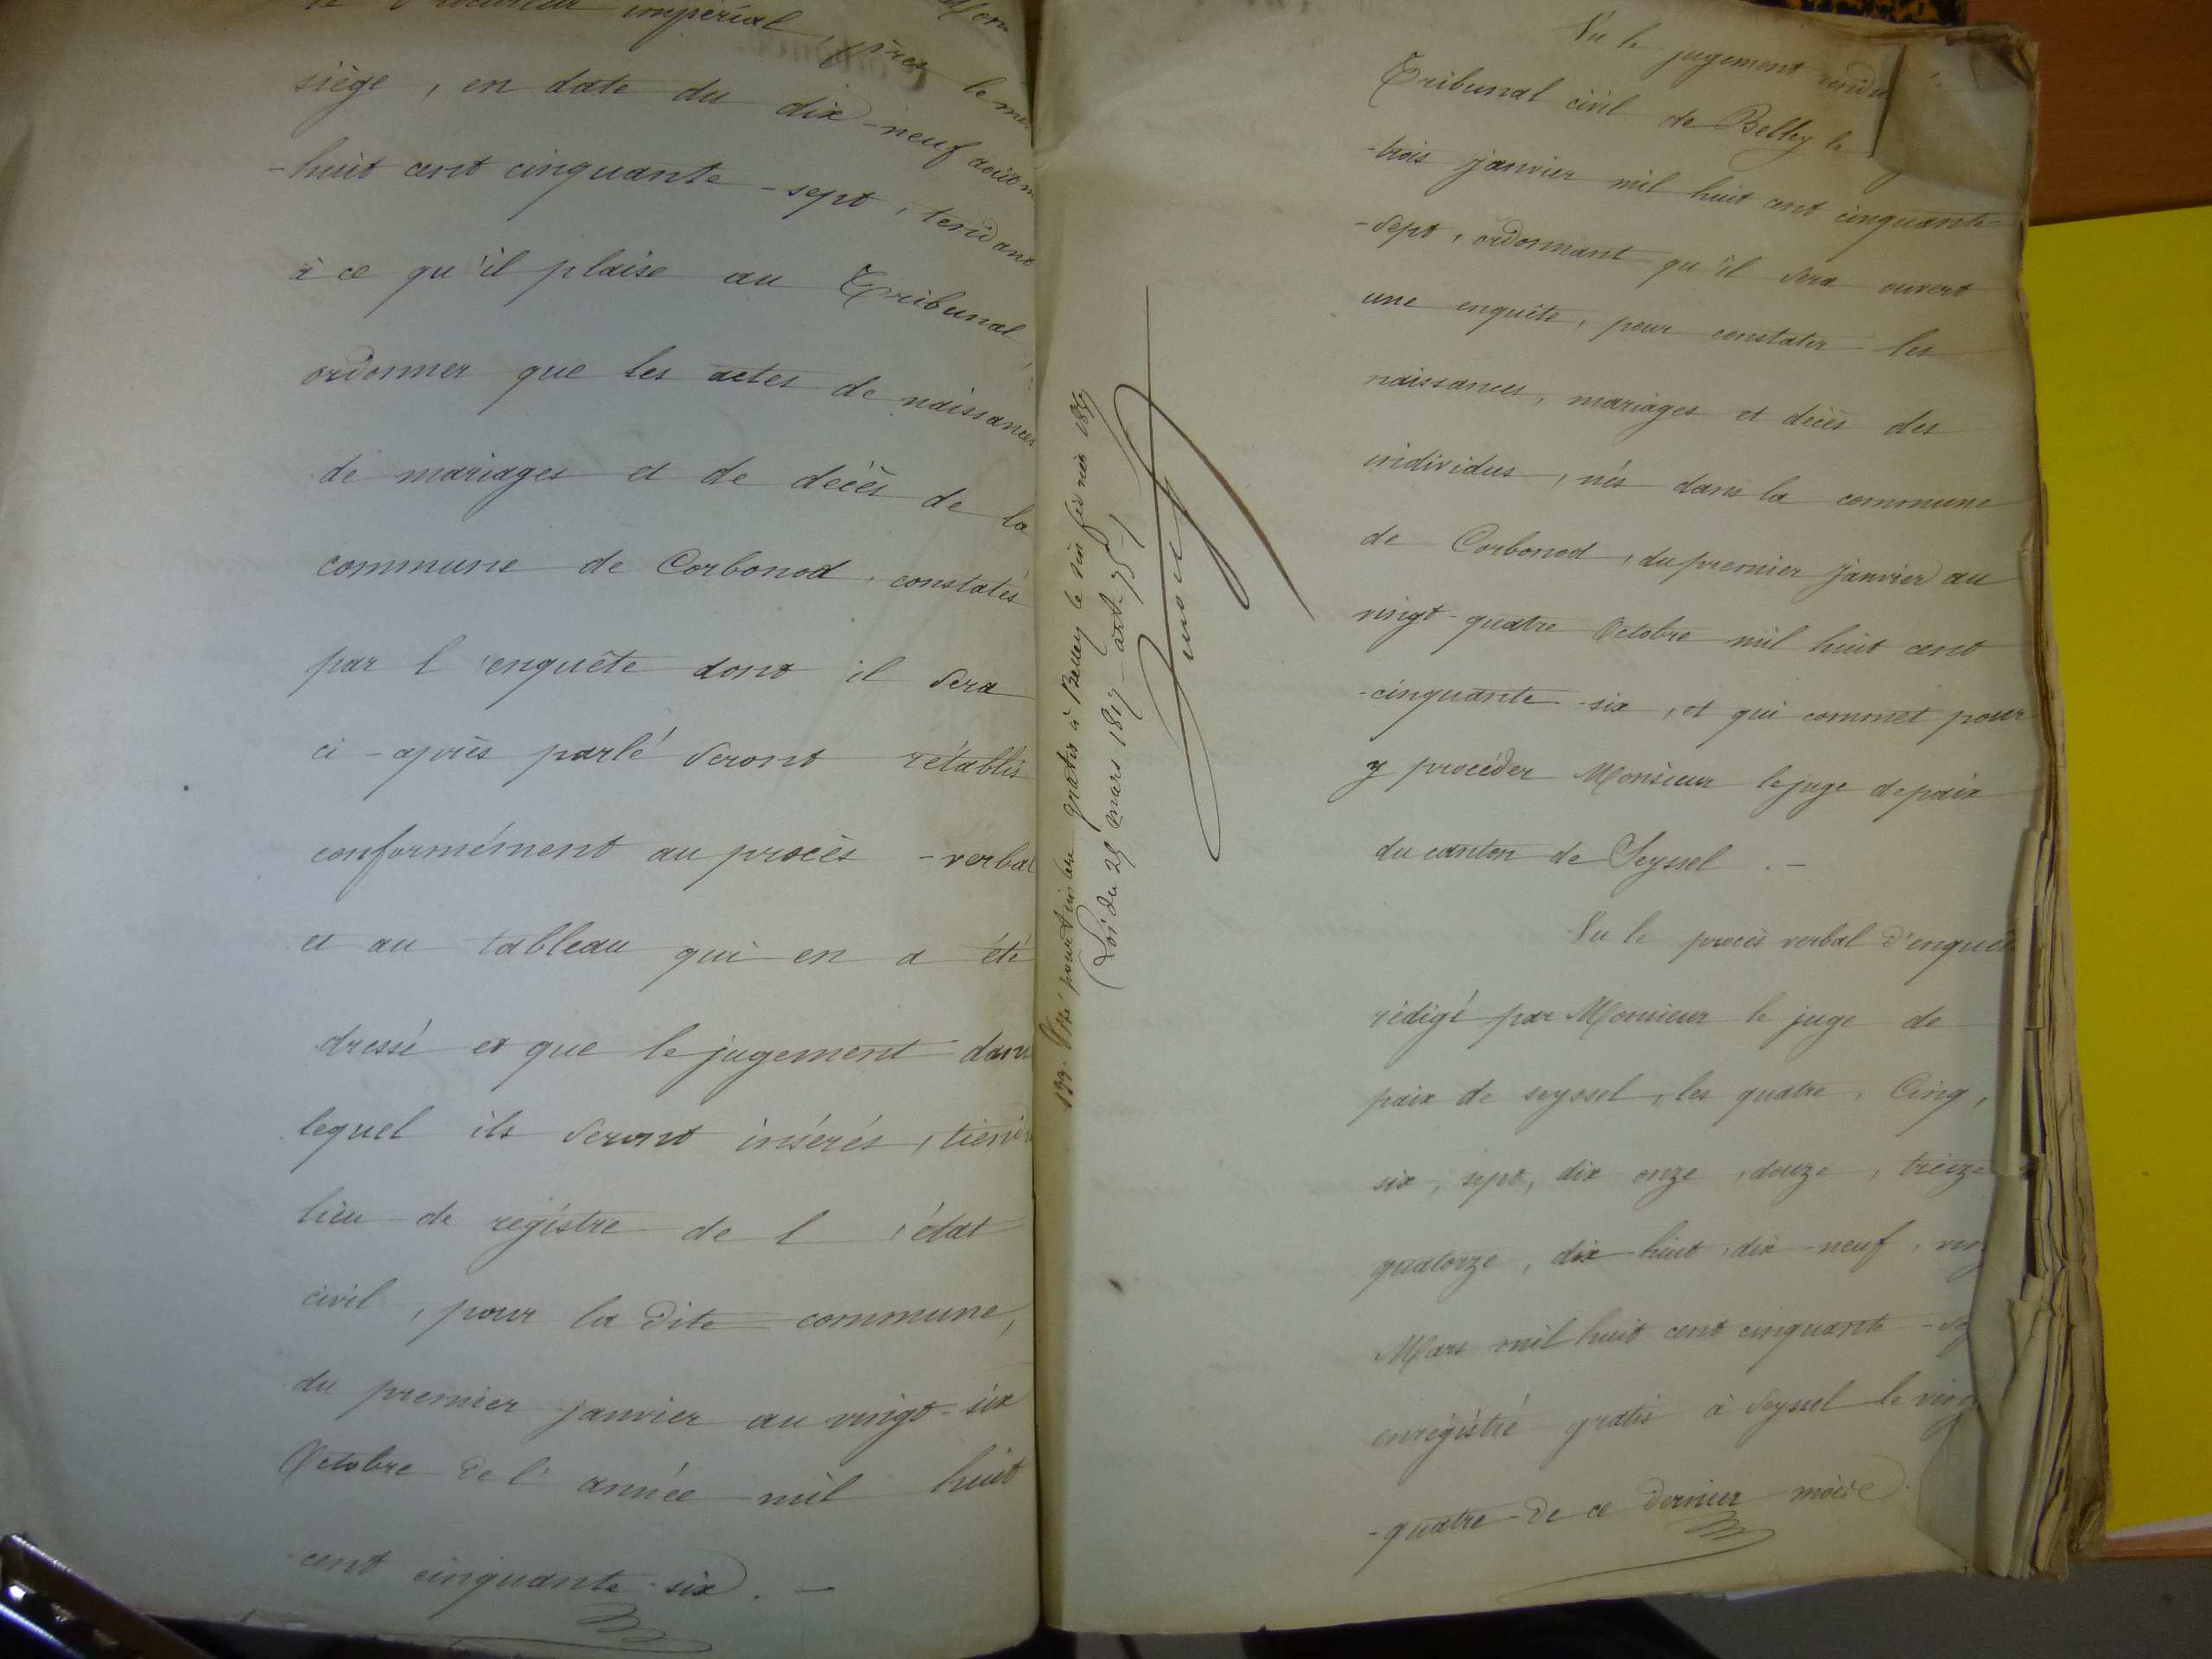 le Procureur impérial, près le
siège, en date du dix-neuf août
-huit cent cinquante-sept, tendant
à ce qu'il plaise au Tribunal,
ordonner que les actes de naissances
de mariages et de décès de la
commune de Corbonod, constatés
par l'enquête dont il sera
ci-après parlé seront rétablis
conformément au procès-verbal
et au tableau qui en a été
dressé et que le jugement dans
lequel ils seront insérés, tiendr
lieu de régistre de l'état
civil, pour la dite commune,
du premier janvier au vingt-six
Octobre de l'année mil huit
cent cinquante-six. —
199. Visé pour timbre gratis à Belley le six février 185
(Loi du 25 mars 1817 - art. 75-)
Vu le jugement rendu
Tribunal civil de Belley le
-trois janvier mil huit cent cinquante-
-sept, ordonnant qu'il sera ouvert
une enquête, pour constater les
naissances, mariages et décès des
individus, nés dans la commune
de Corbonod, du premier janvier au
vingt-quatre Octobre mil huit cent
-cinquante-six, et qui commet pour
y procéder Monsieur le juge de paix
du canton de Seyssel. —
Vu le procès verbal d'enquête
rédigé par Monsieur le juge de
paix de seyssel, les quatre, Cinq,
six, sept, dix onze, douze, treize
quatorze, dix-huit, dix-neuf,
Mars mil huit cent cinquante-
enrégistré gratis à Seyssel le ving
-quatre de ce dernier mois.